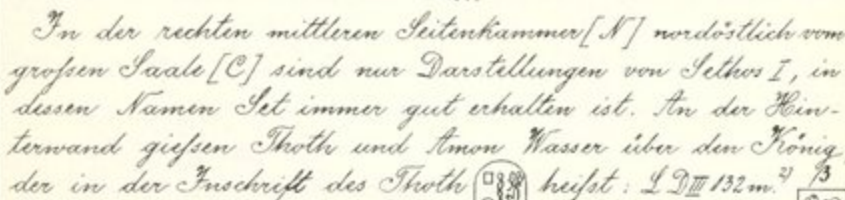 In der rechten mittleren Seitenkammer [N] nordöstlich vom
großen Saale [C] sind nur Darstellungen von Sethos I, in
dessen Namen Set immer gut erhalten ist. An der Hin-
terwand gießen Thoth und Amon Wasser über den König
der in der Inschrift des Thoth heißt: L D III 132 m. 2) /3